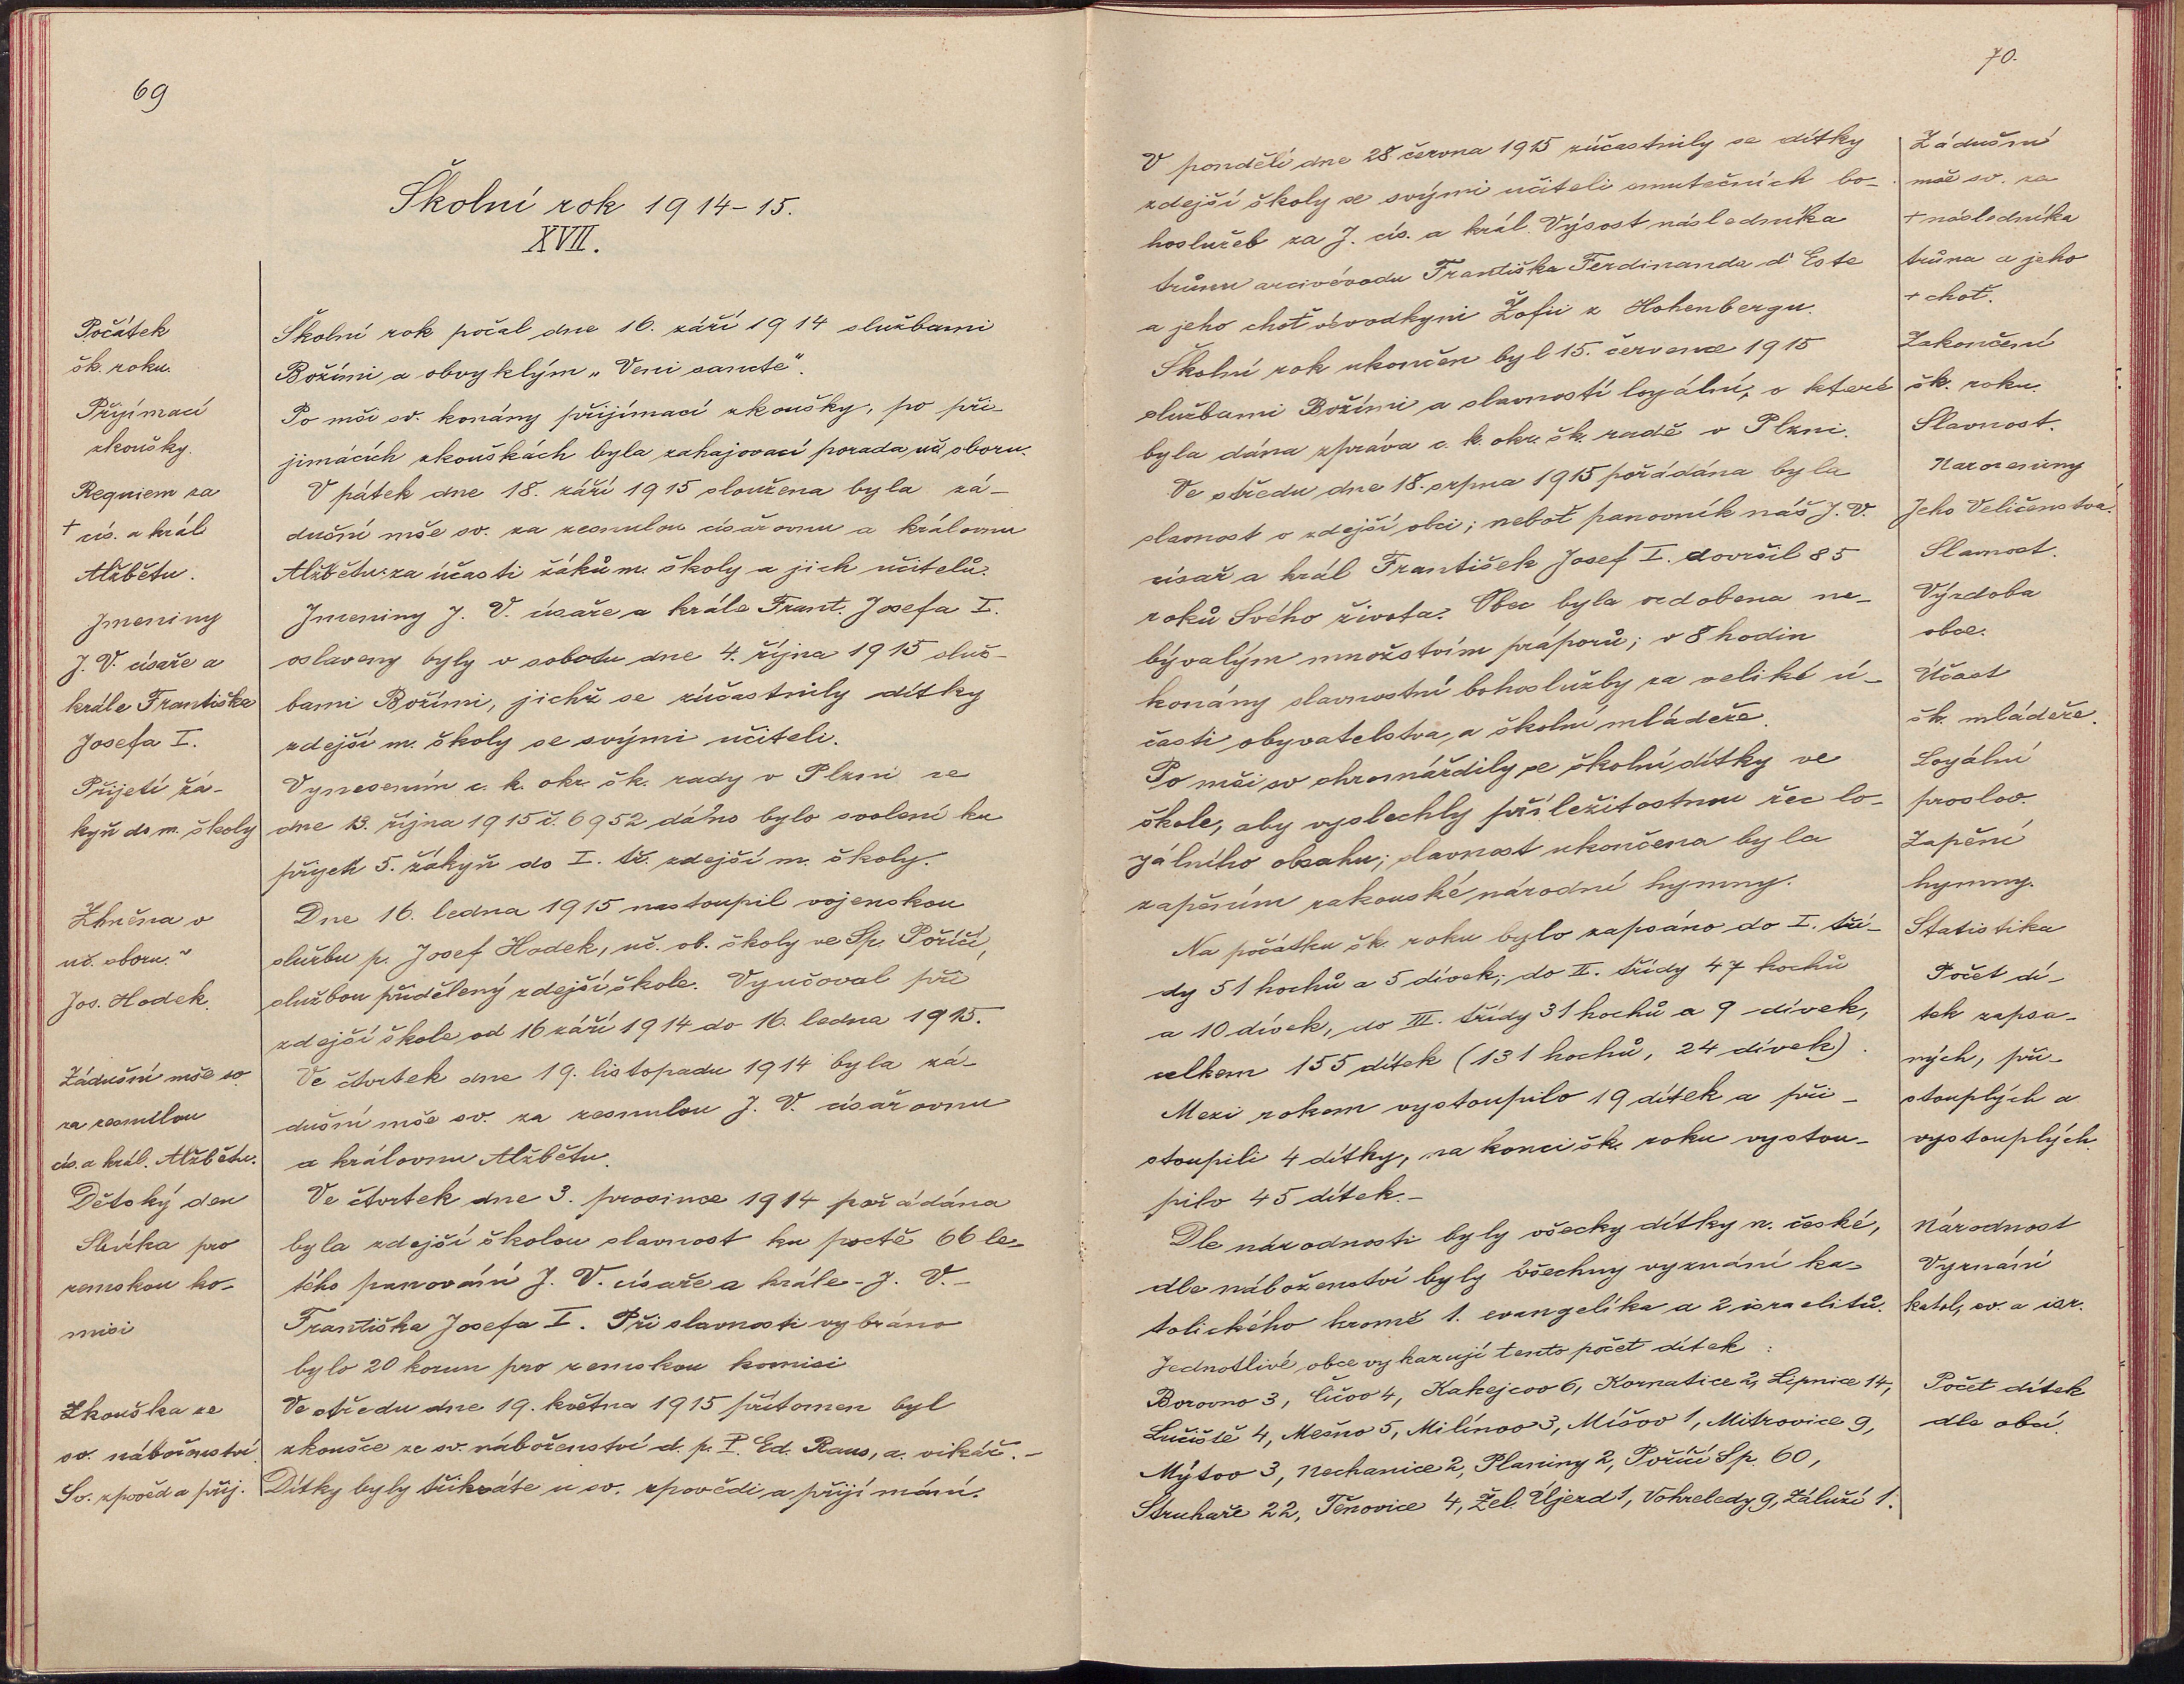 69
Školní rok 1914-15.
XVII.
Počátek
šk. roku.
Přijímací
zkoušky.
Requiem za
† cís. a král.
Alžbětu.
Jmeniny
J. V. císaře a
krále Františka
Josefa I.
Přijetí žá-
kyň do m. školy
Změna v
uč. sboru.
Jos. Hodek.
Zádušní mše sv.
za zesnulou
cís. a král. Alžbětu.
Dětský den
Sbírka pro
zemskou ko-
misi
Zkouška ze
sv. náboženství.
Sv. zpověď a přij.
Školní rok počal dne 16. září 1914 službami
Božími a obvyklým „Veni sancte".
Po mši sv. konány přijímací zkoušky, po při-
jímácích zkouškách byla zahajovací porada uč. sboru.
V pátek dne 18. září 1915 sloužena byla zá-
dušní mše sv. za zesnulou císařovnu a královnu
Alžbětu za účasti žáků m. školy a jich učitelů.
Jmeniny J. V. císaře a krále Frant. Josefa I.
oslaveny byly v sobotu dne 4. října 1915 služ-
bami Božími, jichž se zúčastnily dítky
zdejší m. školy se svými učiteli.
Vynesením c. k. okr. šk. rady v Plzni ze
dne 13. října 1915 č. 6952 dáno bylo svolení ku
přijetí 5. žákyň do I. tř. zdejší m. školy.
Dne 16. ledna 1915 nastoupil vojenskou
službu p. Josef Hodek, uč. ob. školy ve Sp. Poříčí,
službou přidělený zdejší škole. Vyučoval při
zdejší škole od 16 září 1914 do 16. ledna 1915.
Ve čtvrtek dne 19. listopadu 1914 byla zá-
dušní mše sv. za zesnulou J. V. císařovnu
a královnu Alžbětu.
Ve čtvrtek dne 3. prosince 1914 pořádána
byla zdejší školou slavnost ku poctě 66 le-
tého panování J. V. císaře a krále - J. V. -
Františka Josefa I. Při slavnosti vybráno
bylo 20 korun pro zemskou komisi
Ve středu dne 19. května 1915 přítomen byl
zkoušce ze sv. náboženství d. p. P. Ed. Raus, a. vikář. -
Dítky byly třikráte u sv. zpovědi a přijímání.
70.
V pondělí dne 28 června 1915 zúčastnily se dítky
zdejší školy se svými učiteli smutečních bo-
hoslužeb za J. cís. a král. Výsost následníka
trůnu arcivévodu Františka Ferdinanda d' Este
a jeho choť vévodkyni Žofii z Hohenbergu.
Školní rok ukončen byl 15. července 1915
službami Božími a slavností loyální, o které
byla dána zpráva c. k. okr. šk. radě v Plzni.
Ve středu dne 18. srpna 1915 pořádána byla
slavnost v zdejší obci; neboť panovník náš J. V.
císař a král František Josef I. dovršil 85
roků Svého života. Obec byla ozdobena ne-
bývalým množstvím praporů; v 8 hodin
konány slavnostní bohoslužby za veliké ú-
časti obyvatelstva, a školní mládeže.
Po mši sv shromáždily se školní dítky ve
škole, aby vyslechly příležitostnou řeč lo-
yálního obsahu; slavnost ukončena byla
zapěním rakouské národní hymny.
Na počátku šk. roku bylo zapsáno do I. tří-
dy 51 hochů a 5 dívek; do II. třídy 47 hochů
a 10 dívek, do III. třídy 31 hochů a 9 dívek,
celkem 155 dítek (131 hochů, 24 dívek).
Mezi rokem vystoupilo 19 dítek a při-
stoupili 4 dítky, na konci šk. roku vystou-
pilo 45 dítek. -
Dle národnosti byly všecky dítky n. české,
dle náboženství byly všechny vyznání ka-
tolického kromě 1. evangelíka a 2 israelitů.
Jednotlivé obce vykazují tento počet dítek :
Borovno 3, Číčov 4, Kakejcov 6, Kornatice 2, Lipnice 14,
Lučiště 4, Mešno 5, Milínov 3, Míšov 1, Mitrovice 9,
Mýtov 3, Nechanice 2, Planiny 2, Poříčí Sp. 60,
Struhaře 22, Těnovice 4, Žel. Újezd 1, Vohreledy 9, Záluží 1.
Zádušní
mše sv. za
† následníka
trůna a jeho
† choť.
Zakončení
šk. roku.
Slavnost.
Narozeniny
Jeho Veličenstva.
Slavnost.
Výzdoba
obce.
Účast
šk. mládeže.
Loyální
proslov.
Zapění
hymny.
Statistika
Počet dí-
tek zapsa-
ných, při-
stouplých a
vystouplých.
Národnost
Vyznání
katol., ev. a isr.
Počet dítek
dle obcí.